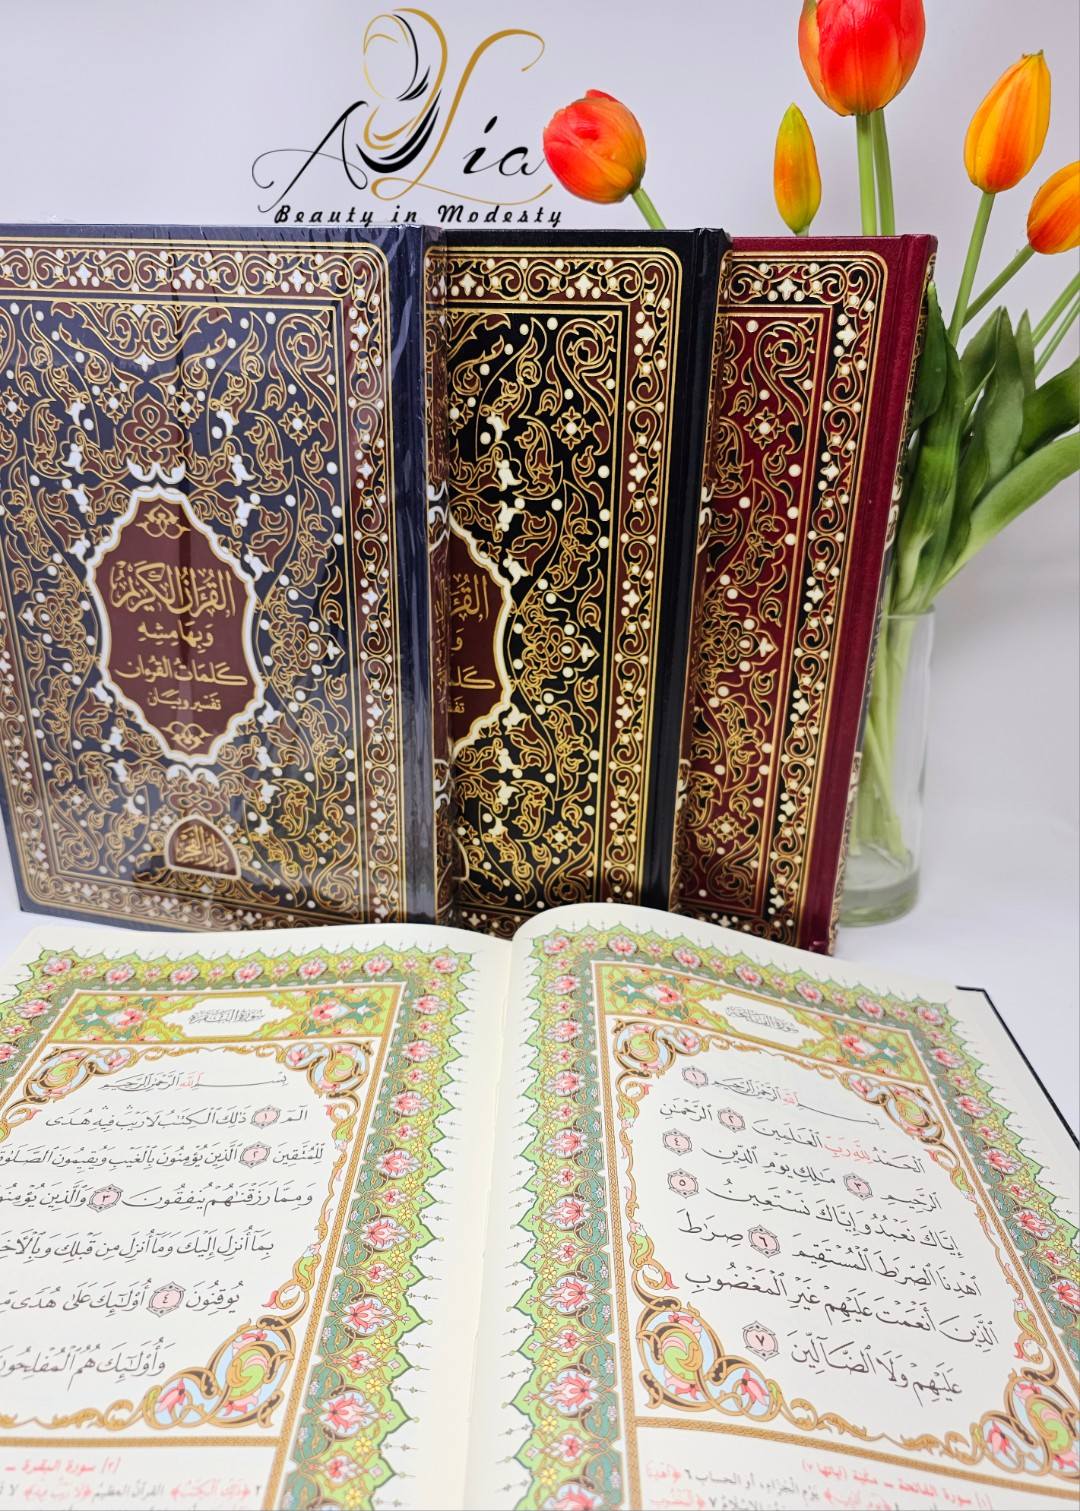 Aylia
Beauty in Modesty
القرآن الكريم
وبهامشه
كلمات القرآن
تفسير وبيان
دار الفجر
سورة الفاتحة
بِسْمِ ٱللَّهِ ٱلرَّحْمَٰنِ ٱلرَّحِيمِ ١
ٱلْحَمْدُ لِلَّهِ رَبِّ ٱلْعَٰلَمِينَ ٢ ٱلرَّحْمَٰنِ
ٱلرَّحِيمِ ٣ مَٰلِكِ يَوْمِ ٱلدِّينِ ٤
إِيَّاكَ نَعْبُدُ وَإِيَّاكَ نَسْتَعِينُ ٥
ٱهْدِنَا ٱلصِّرَٰطَ ٱلْمُسْتَقِيمَ ٦ صِرَٰطَ
ٱلَّذِينَ أَنْعَمْتَ عَلَيْهِمْ غَيْرِ ٱلْمَغْضُوبِ
عَلَيْهِمْ وَلَا ٱلضَّآلِّينَ ٧
سورة البقرة
بِسْمِ ٱللَّهِ ٱلرَّحْمَٰنِ ٱلرَّحِيمِ
الٓمٓ ١ ذَٰلِكَ ٱلْكِتَٰبُ لَا رَيْبَ فِيهِ هُدًى
لِّلْمُتَّقِينَ ٢ ٱلَّذِينَ يُؤْمِنُونَ بِٱلْغَيْبِ وَيُقِيمُونَ ٱلصَّلَوٰةَ
وَمِمَّا رَزَقْنَٰهُمْ يُنفِقُونَ ٣ وَٱلَّذِينَ يُؤْمِنُو
بِمَآ أُنزِلَ إِلَيْكَ وَمَآ أُنزِلَ مِن قَبْلِكَ وَبِٱلْأَخِ
يُوقِنُونَ ٤ أُو۟لَٰٓئِكَ عَلَىٰ هُدًى مِّ
وَأُو۟لَٰٓئِكَ هُمُ ٱلْمُفْلِحُونَ
(٢) سورة البقرة